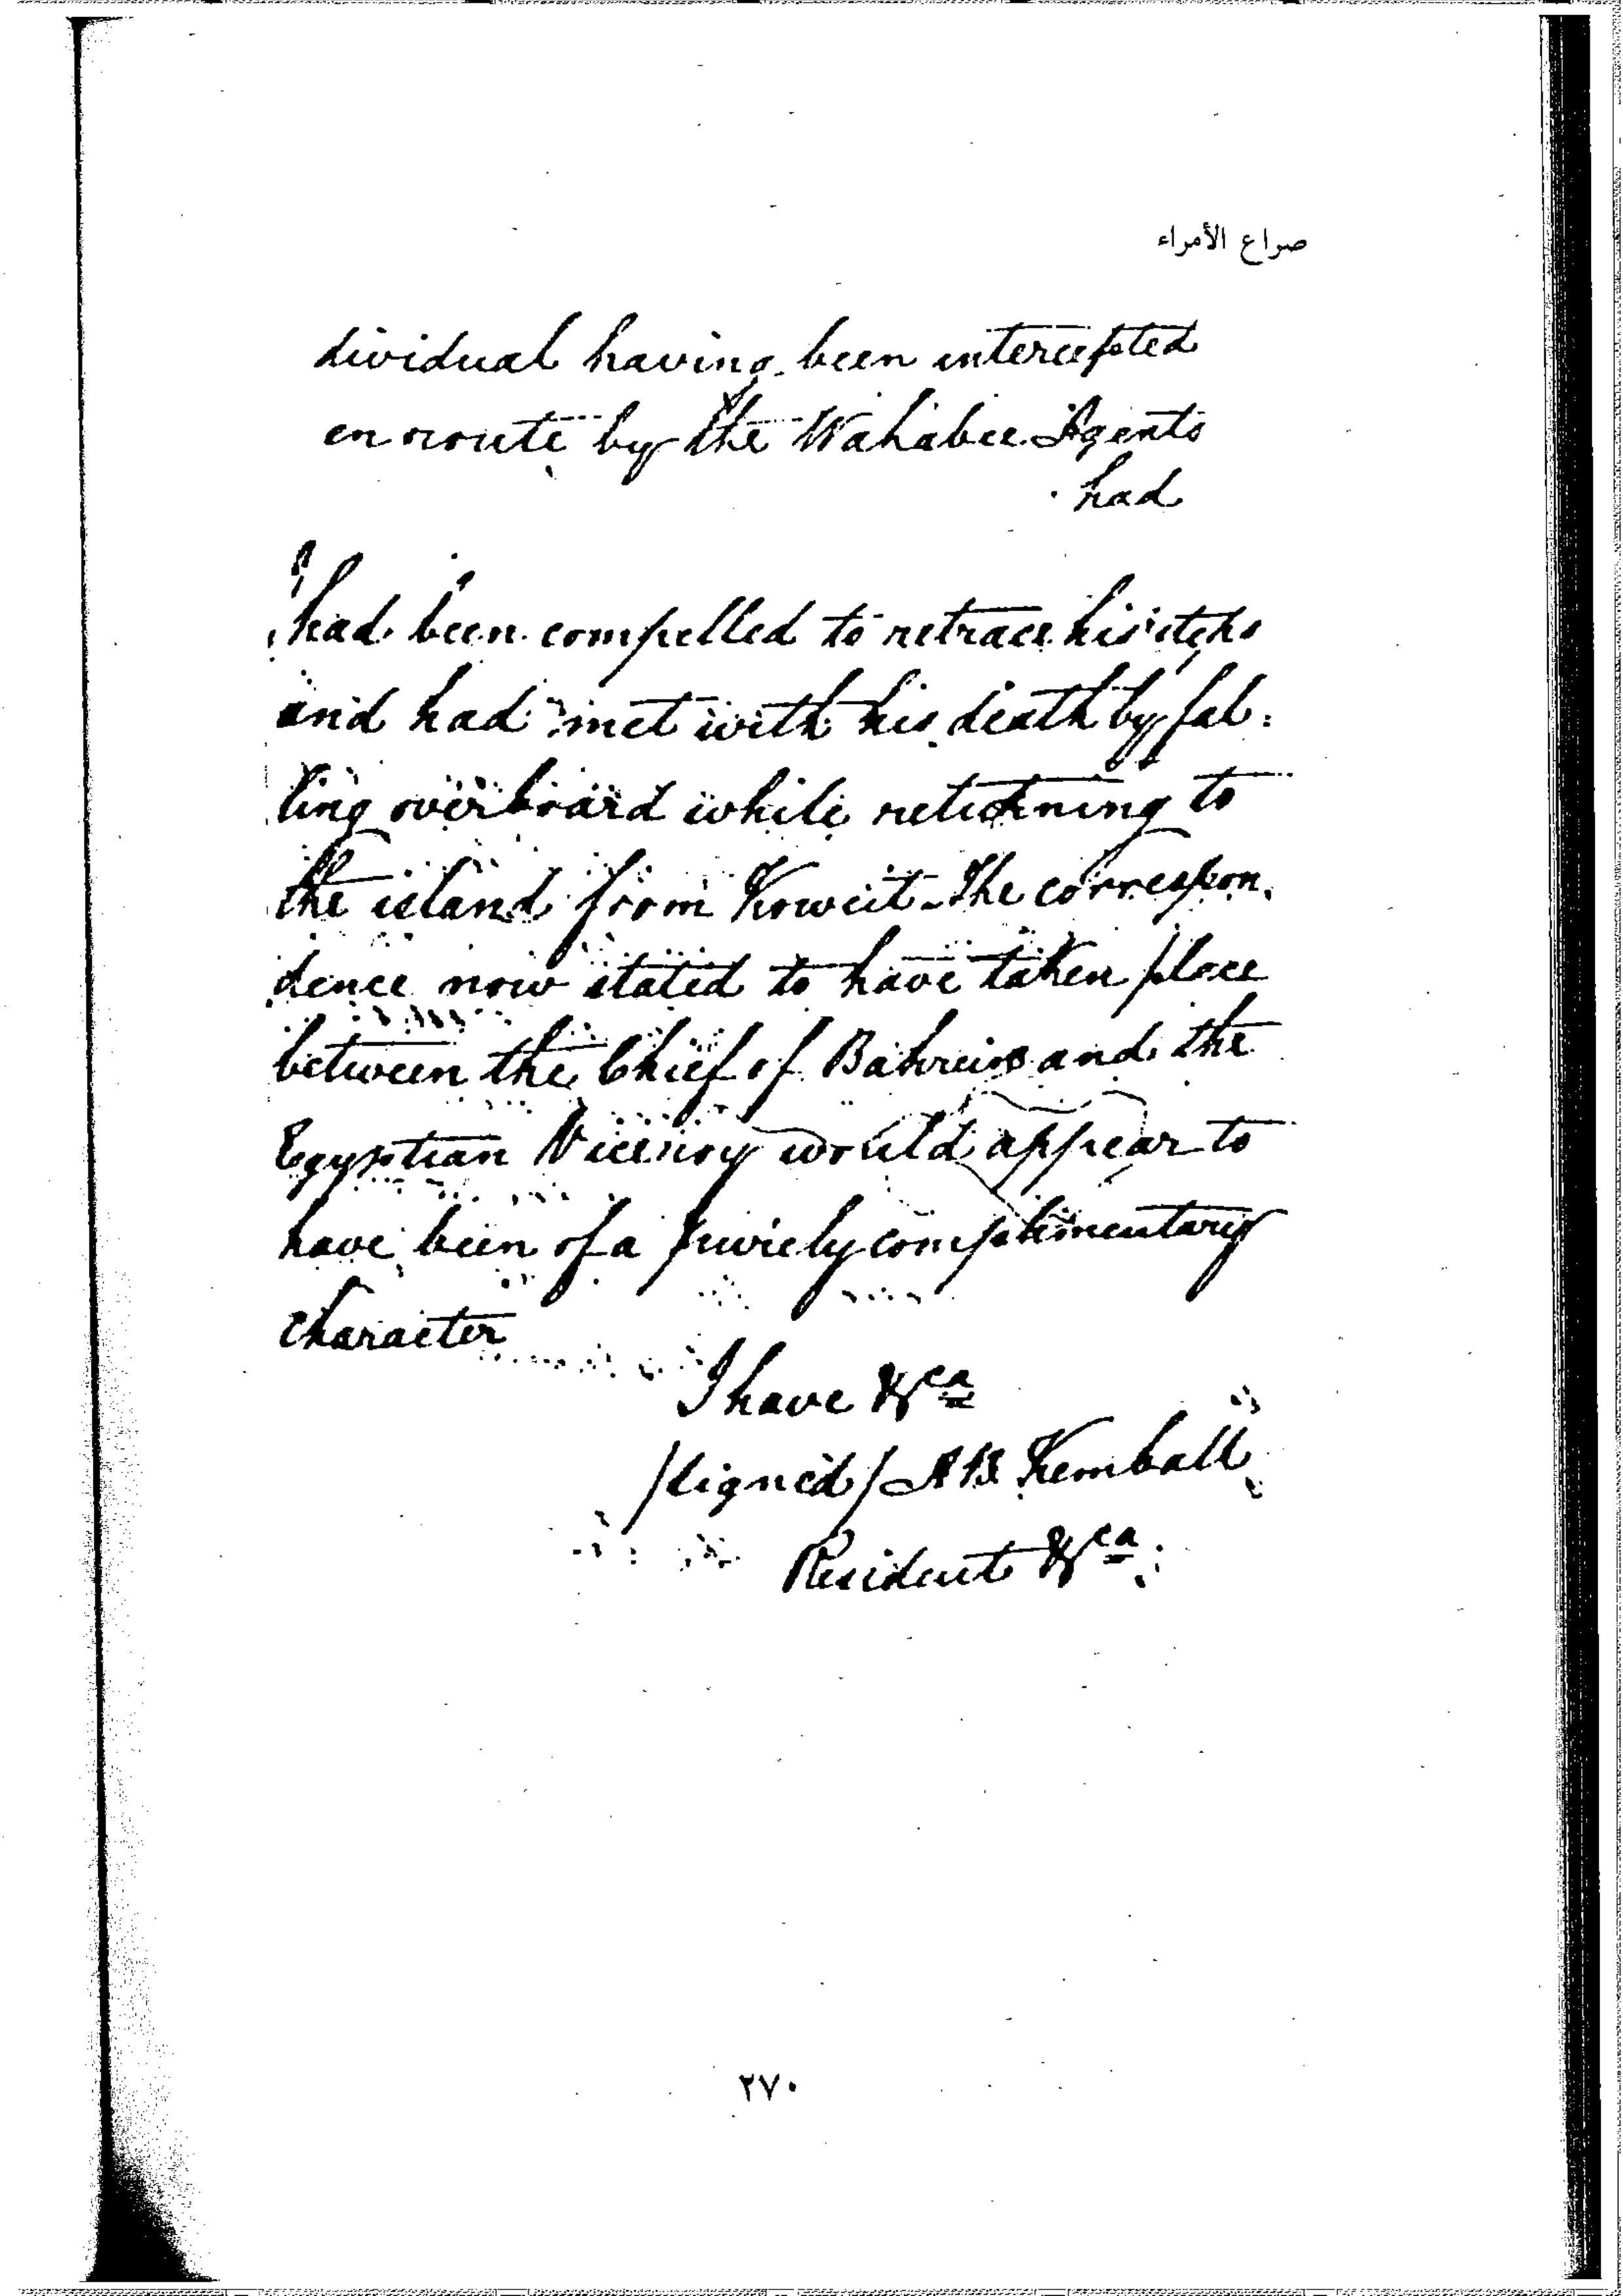 صراع الأمراء
dividual having been intercepted
en route by the Wahabee Agents
had
had been compelled to retrace his steps
and had met with his death by fal:
ling overboard while returning to
the island from Koweit - The correspon.
dence now stated to have taken place
between the Chief of Bahrein and the
Egyptian Viceroy would appear to
have been of a purely complimentary
character
I have &ca
/signed/ A B Kemball
Resident &ca
٢٧٠